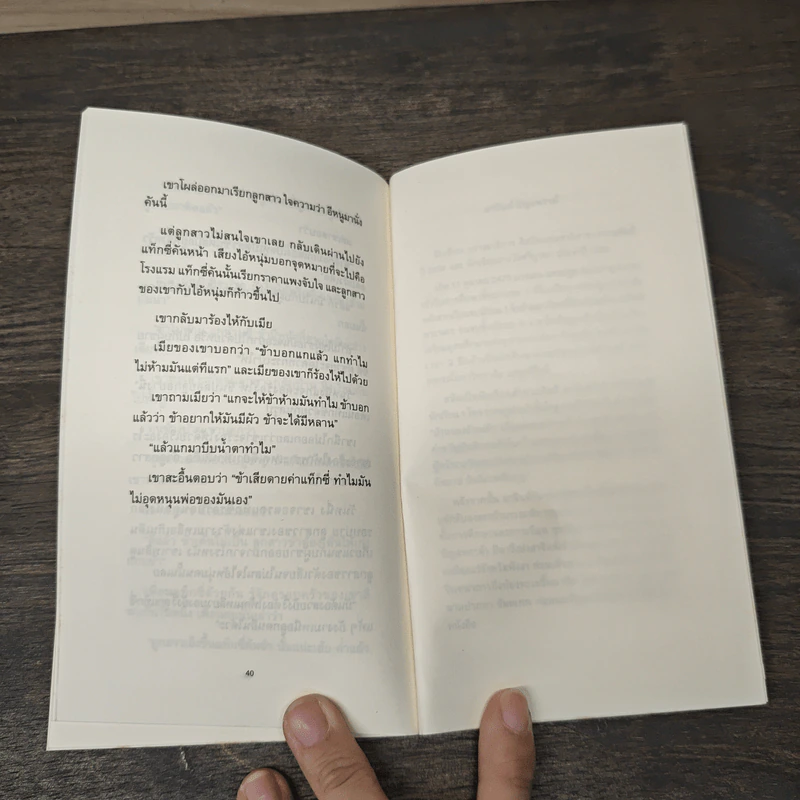 เขาโผล่ออกมาเรียกลูกสาว ใจความว่า อีหนูมานั่ง
คันนี้
แต่ลูกสาวไม่สนใจเขาเลย กลับเดินผ่านไปยัง
แท็กซี่คันหน้า เสียงไอ้หนุ่มบอกจุดหมายที่จะไปคือ
โรงแรม แท็กซี่คันนั้นเรียกราคาแพงจับใจ และลูกสาว
ของเขากับไอ้หนุ่มก็ก้าวขึ้นไป
เขากลับมาร้องไห้กับเมีย
เมียของเขาบอกว่า “ข้าบอกแกแล้ว แกทำไม
ไม่ห้ามมันแต่ทีแรก” และเมียของเขาก็ร้องไห้ไปด้วย
เขาถามเมียว่า “แกจะให้ข้าห้ามมันทำไม ข้าบอก
แล้วว่า ข้าอยากให้มันมีผัว ข้าจะได้มีหลาน”
“แล้วแกมาบีบน้ำตาทำไม”
เขาสะอื้นตอบว่า “ข้าเสียดายค่าแท็กซี่ ทำไมมัน
ไม่อุดหนุนพ่อของมันเอง”
40